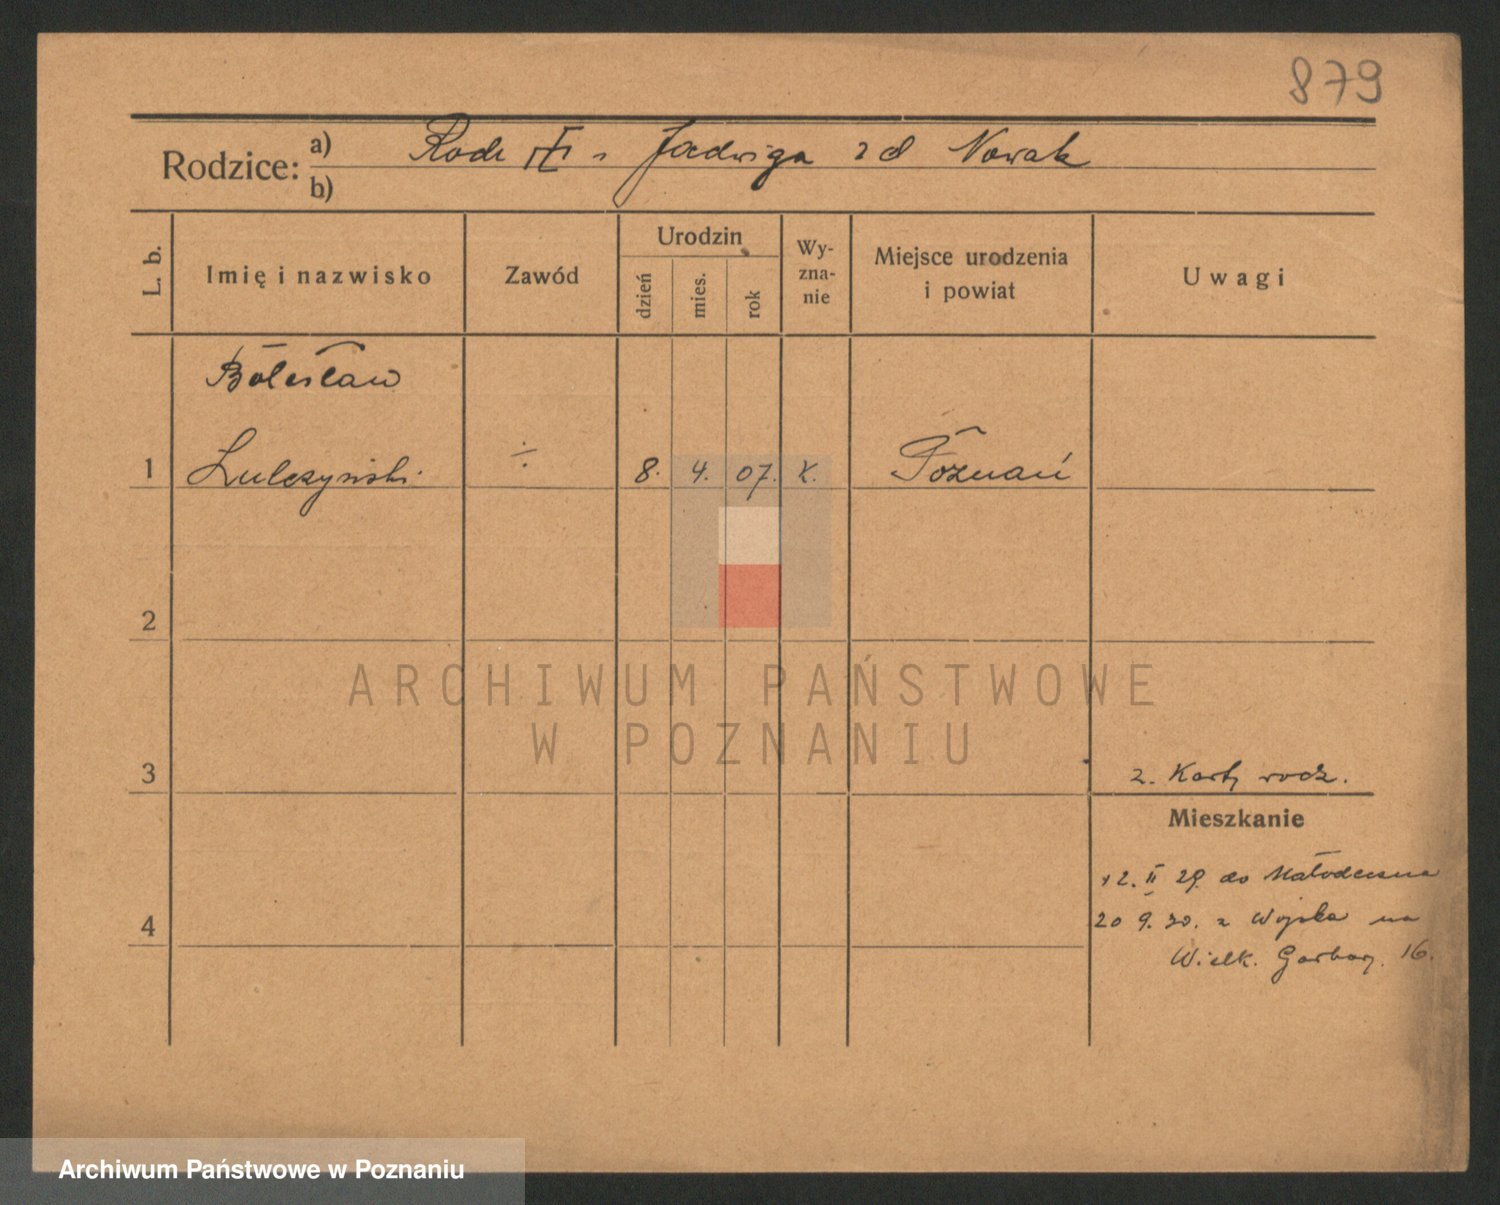 879
Rodzice: a) Jadwiga zd Nowak
b)
L. b.
Imię i nazwisko
Zawód
Urodzin
dzień
mies.
rok
Wy-
zna-
nie
Miejsce urodzenia
i powiat
Uwagi
Bolesław
1 Lulczyński ÷ 8. 4. 07. k. Poznań
2
ARCHIWUM PAŃSTWOWE
W POZNANIU
3 z. Karty rodz.
Mieszkanie
12. II 29. do Mołodeczna
4 20 9. 30. z Wojska na
Wielk. Garbary. 16.
Archiwum Państwowe w Poznaniu